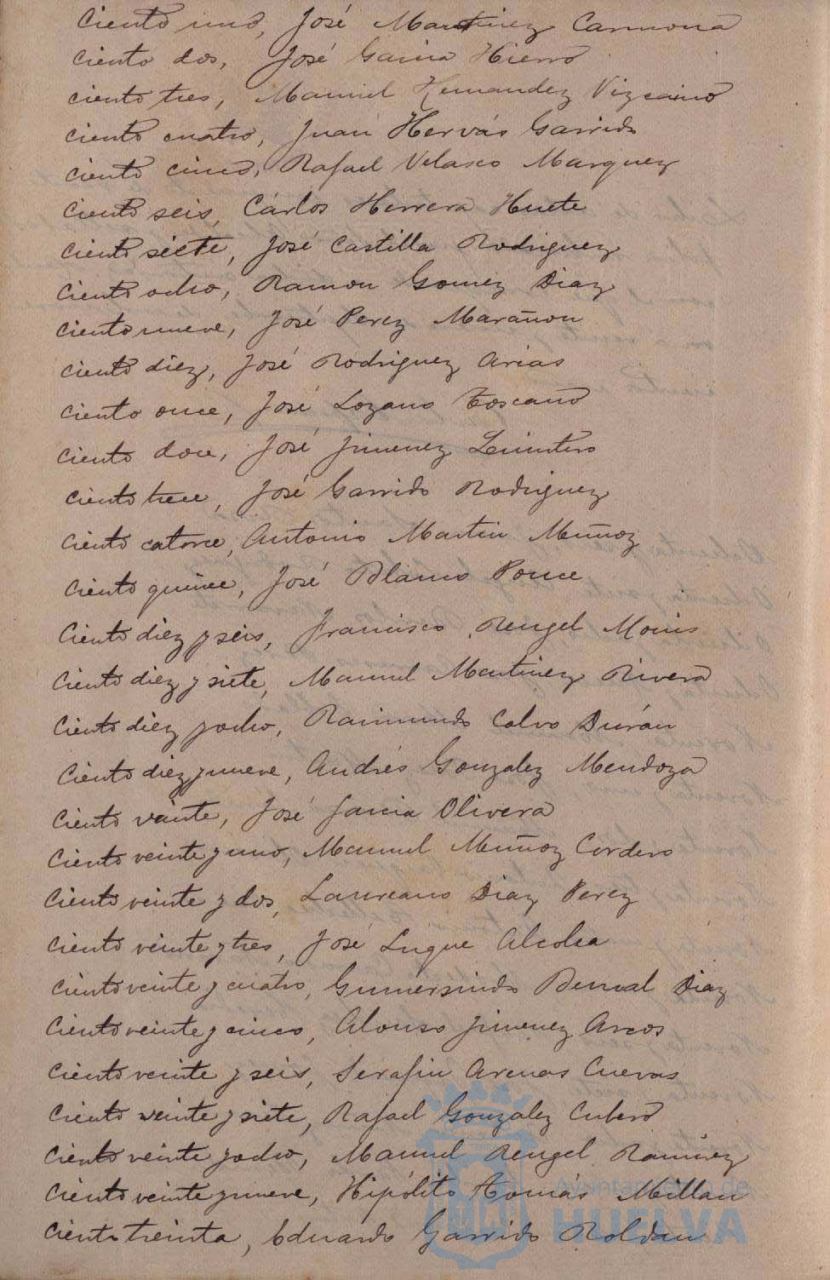 Ciento uno, José Martinez Carmona
Ciento dos, José Garcia Hierro
Ciento tres, Manuel Hernandez Vizcaino
Ciento cuatro, Juan Hervás Garrido
Ciento cinco, Rafael Velasco Marquez
Ciento seis, Cárlos Herrera Huete
Ciento siete, José Castilla Rodriguez
Ciento ocho, Ramon Gomez Diaz
Ciento nueve, José Perez Marañon
Ciento diez, José Rodriguez Arias
Ciento once, José Lozano Toscano
Ciento doce, José Jimenez
Ciento trece, José Garrido Rodriguez
Ciento catorce, Antonio Martin Muñoz
Ciento quince, José Blanco Ponce
Ciento diez y seis, Francisco Rengel
Ciento diez y siete, Manuel Martinez Rivera
Ciento diez y ocho, Raimundo Calvo Durán
Ciento diez y nueve, Andrés Gonzalez Mendoza
Ciento veinte, José Garcia Olivera
Ciento veinte y uno, Manuel Muñoz Cordero
Ciento veinte y dos, Laureano Diaz Perez
Ciento veinte y tres, José Luque Alcolea
Ciento veinte y cuatro, Gumersindo Bernal Diaz
Ciento veinte y cinco, Alonso Jimenez Arcos
Ciento veinte y seis, Serafin Arenas Cuevas
Ciento veinte y siete, Rafael Gonzalez Cubero
Ciento veinte y ocho, Manuel Rengel Ramirez
Ciento veinte y nueve, Hipólito Tomás Millan
Ciento treinta, Eduardo Garrido Roldan
Ayuntamiento de
HUELVA